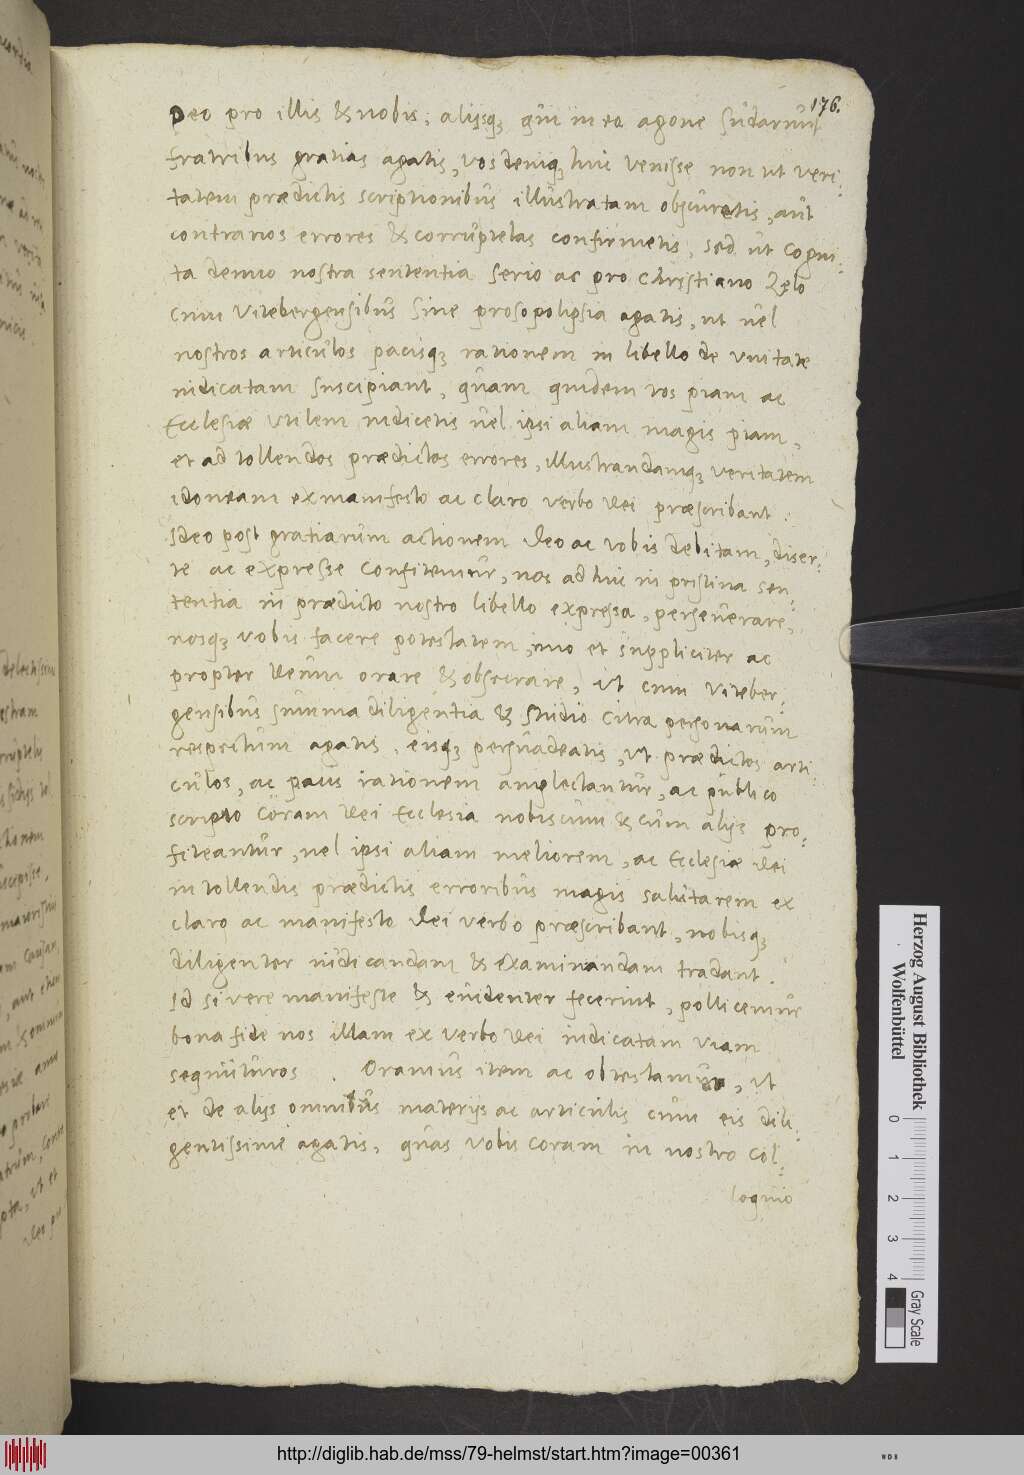 176.
Deo pro illis & nobis, alijsq₃ qui in ea agone sudarunt
fratribus gratias agatis, vos deniq₃ huc venisse non ut veri-
tatem prædictis scriptionibus illustratam obscuretis, aut
contrarios errores & corruptelas confirmetis, sed ut cogni-
ta demuo nostra sententia serio ac pro Christiano Zelo
cum Vitebergensibus sine prosopolipsia agatis, ut vel
nostros articulos pacisq₃ rationem in libello de unitate
iudicatam suscipiant, quam quidem vos piam ac
Ecclesiæ utilem iudicetis vel ipsi aliam magis piam,
et ad tollendos prædictos errores, illustrandamq₃ veritatem
idoneam ex manifesto ac claro verbo Dei præscribant.
Ideo post gratiarum actionem Deo ac vobis debitam, diser-
te ac expresse confitemur, nos adhuc in pristina sen-
tentia in prædicto nostro libello expressa, perseverare,
nosq₃ vobis facere potestatem, imo et suppliciter ac
propter Deum orare & obsecrare, ut cum Viteber-
gensibus summa diligentia & studio citra personarum
respectum agatis, eisq₃ persuadeatis, ut prædictos arti-
culos, ac pacis rationem amplectantur, ac publico
scripto coram Dei Ecclesia nobiscum & cum alijs pro-
fiteantur, vel ipsi aliam meliorem, ac Ecclesiæ Dei
in tollendis prædictis erroribus magis salutarem ex
claro ac manifesto Dei verbo præscribant, nobisq₃
diligenter iudicandam & examinandam tradant.
Id si vere manifeste & euidenter fecerint, pollicemur
bona fide nos illam ex verbo Dei indicatam viam
sequuturos. Oramus item ac obtestamur, ut
et de alijs omnibus materijs ac articulis cum eis dili-
gentissime agatis, quas vobis coram in nostro col-
loquio
Herzog August Bibliothek
Wolfenbüttel
0 1 2 3 4
Gray Scale
http://diglib.hab.de/mss/79-helmst/start.htm?image=00361